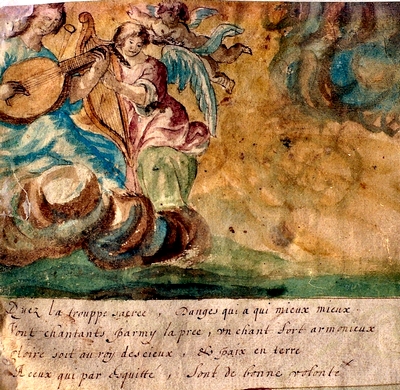 Oyez la trouppe sacree, Danges qui a qui mieux mieux
Vont chantants parmy la pree, vn chant fort armonieux
Gloire soit au roy des cieux, & paix en terre
A ceux qui par Equitte, sont de bonne volonte